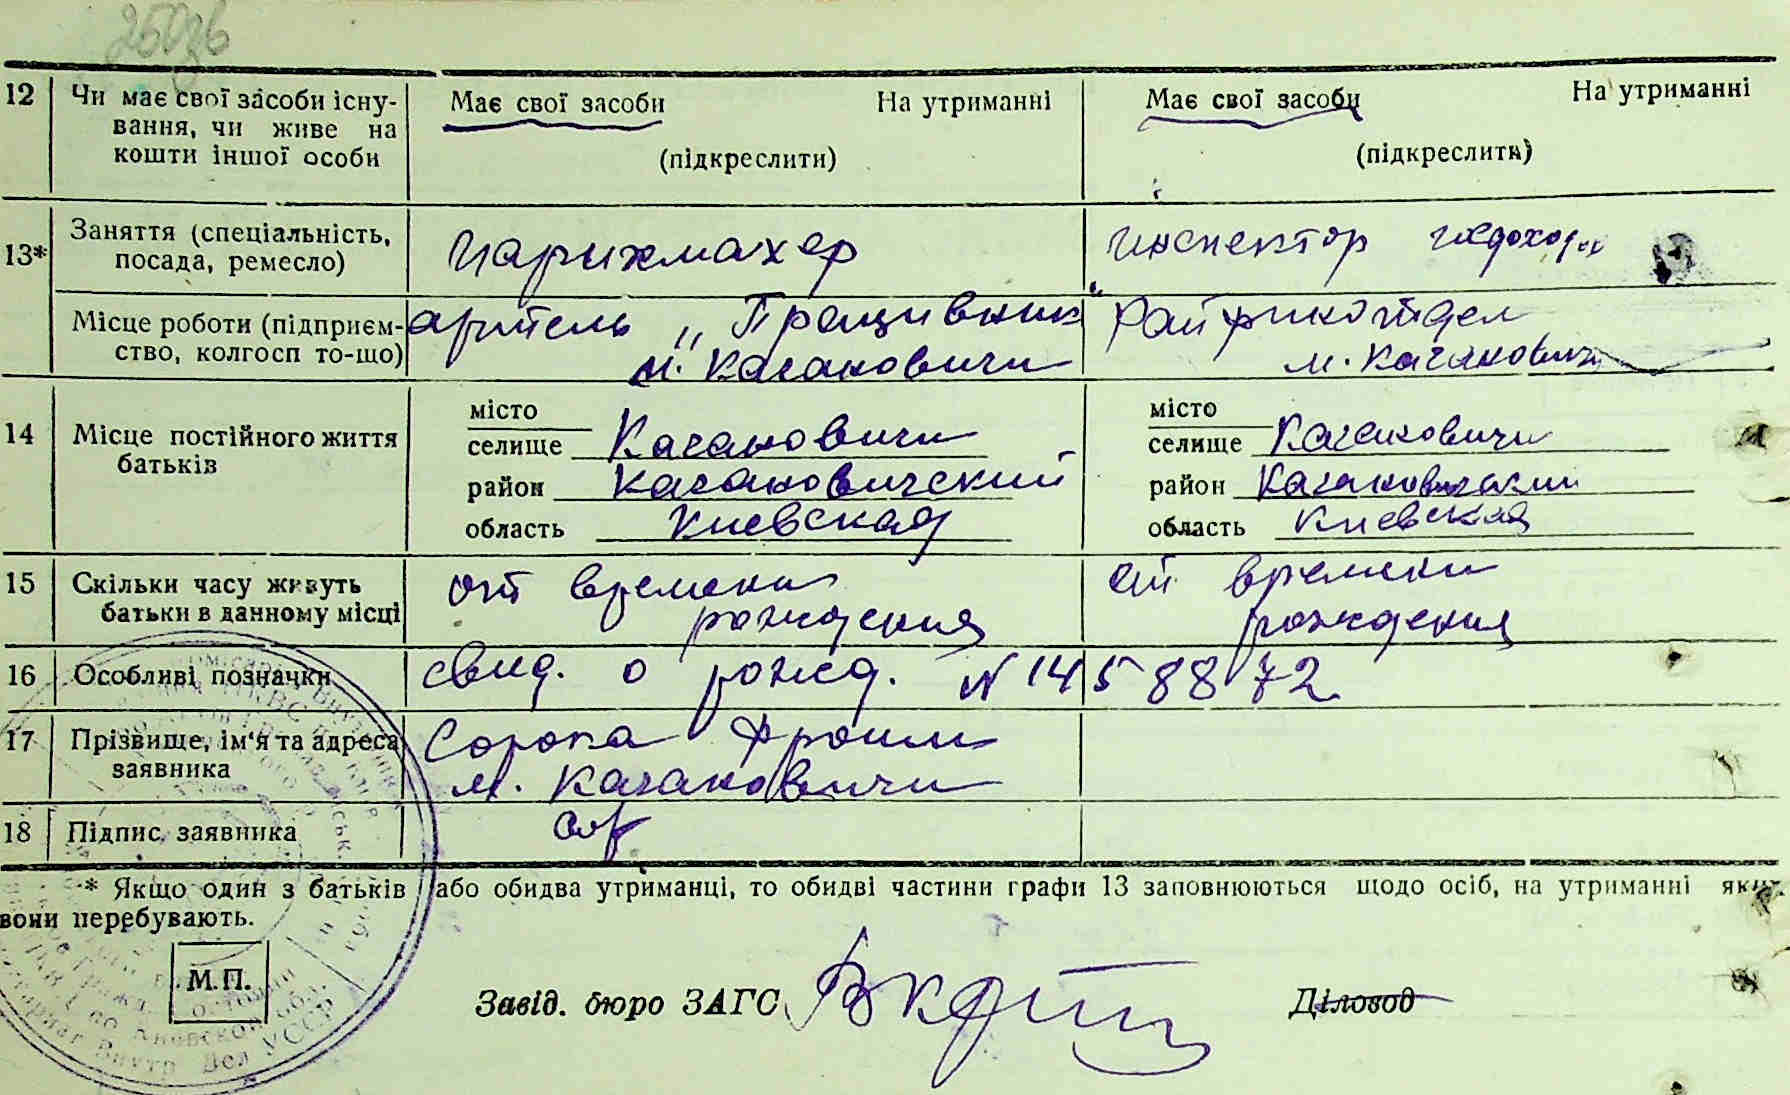 12 Чи має свої засоби існу- Має свої засоби На утриманні Має свої засоби На утриманні
вання, чи живе на
кошти іншої особи (підкреслити) (підкреслити)
13* Заняття (спеціальність, парикмахер инспектор госдоходов
посада, ремесло)
Місце роботи (підприєм- артель „Працивник" Райфинотдел
ство, колгосп то-що) м. Каганович и м. Кагановичи
місто місто
14 Місце постійного життя селище Кагановичи селище Кагановичи
батьків район Кагановичский район Кагановичский
область Киевская область Киевская
15 Скільки часу живуть от времени от времени
батьки в данному місці рождения рождения
16 Особливі позначки свид. о рожд. N 1458872
17 Прізвище, ім'я та адреса Сорока Фроим
заявника м. Кагановичи
18 Підпис, заявника
* Якщо один з батьків або обидва утриманці, то обидві частини графи 13 заповнюються щодо осіб, на утриманні яких
вони перебувають.
М.П.
Завід. бюро ЗАГС Діловод
Внутр Дел УССР